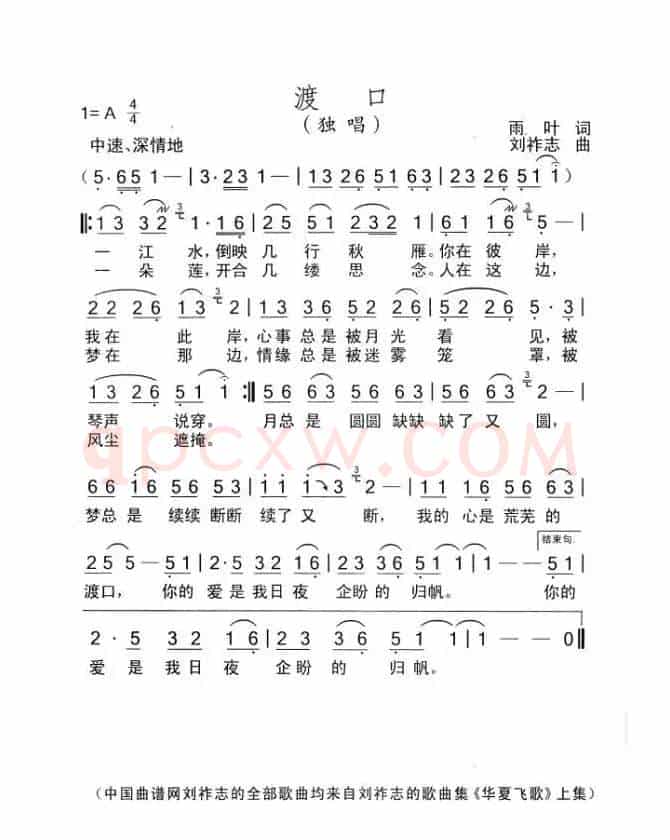 渡 口
(独 唱)
1=A 4/4
雨 叶 词
中速、深情地
刘祚志 曲
(5·651—|3·231—|132651 63|572651 1)
‖:13 32 1·16|25 51 232 63|61 116 5—|
一江水,倒映几行秋雁。你在彼岸,
一朵莲,开合几缕思念。人在这边,
22 26 13 2|13 36 56 26|52 26 5·3|
我在此岸,心事总是被月光看见,被
梦在那边,情缘总是被迷雾笼罩,被
13 26 51 1:‖56 63 56 63|56 63 5—|
琴声说穿。月总是圆圆缺缺缺了又圆,
风尘遮掩。
qpcxw.com
66 16 56 53|11 13 2—|11 16 56 63|
梦总是续续断断续了又断,我的心是荒芜的
结束句
255—51|2·532 16|23 36 51 1|1——51|
渡口,你的爱是我日夜企盼的归帆。你的
2·5 32 16|23 36 51 1|1——0‖
爱是我日夜企盼的归帆。
(中国曲谱网刘祚志的全部歌曲均来自刘祚志的歌曲集《华夏飞歌》上集)